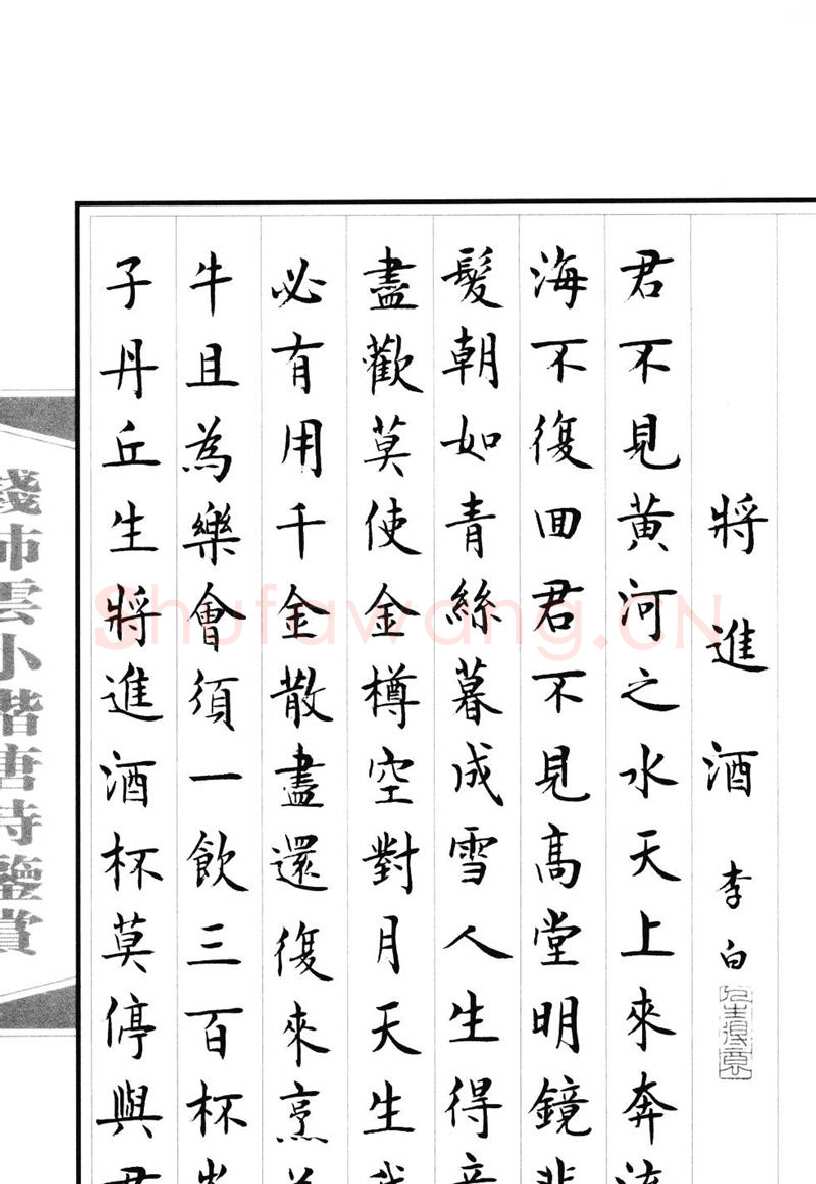 將進酒 李白
人生得意
君不見黃河之水天上來奔流
海不復回君不見高堂明鏡悲
髮朝如青絲暮成雪人生得意
盡歡莫使金樽空對月天生我
必有用千金散盡還復來烹羊
牛且為樂會須一飲三百杯岑
子丹丘生將進酒杯莫停與君
錢沛雲小楷唐詩鑒賞
Shufawang.CN